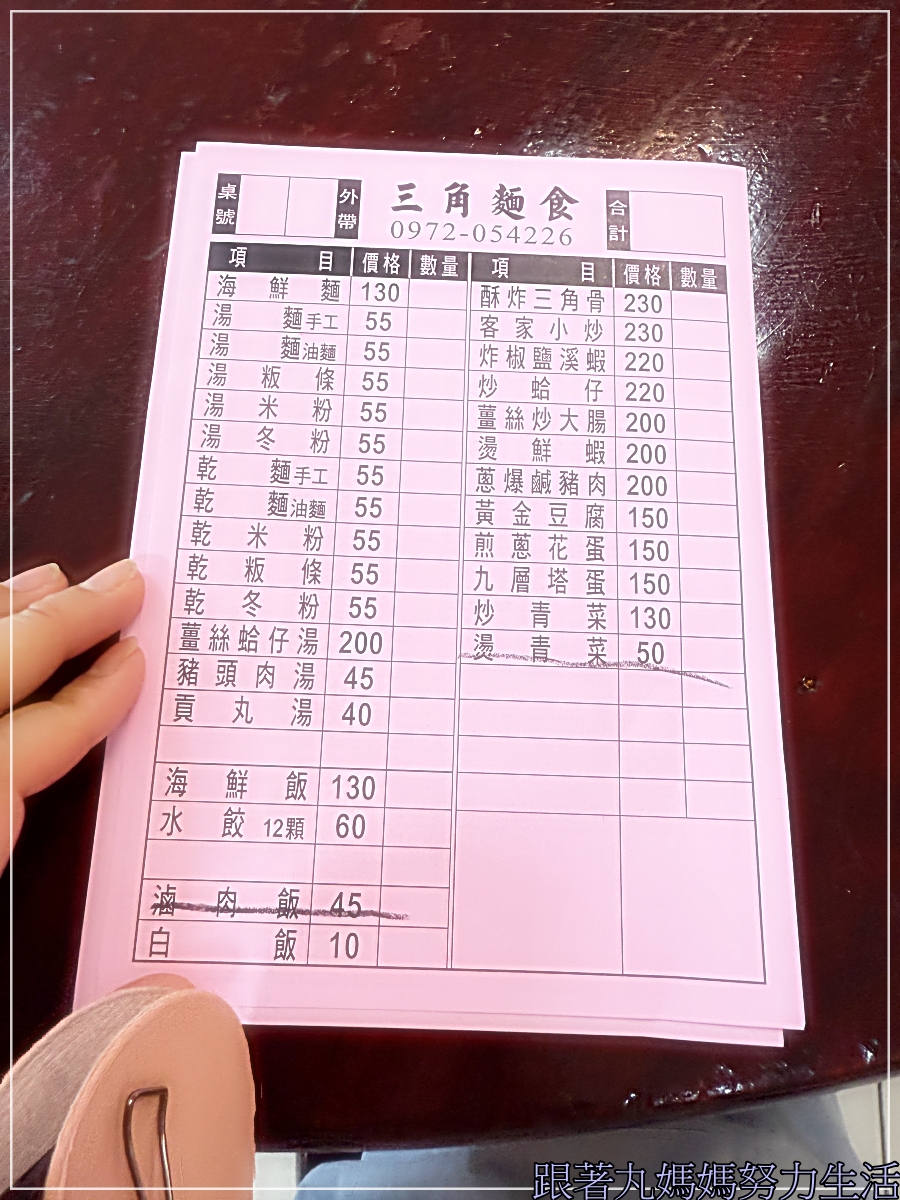 桌號 外帶 三角麵食 合計
0972-054226
項目 價格 數量
海鮮麵 130
湯麵手工 55
湯麵油麵 55
湯粄條 55
湯米粉 55
湯冬粉 55
乾麵手工 55
乾麵油麵 55
乾米粉 55
乾粄條 55
乾冬粉 55
薑絲蛤仔湯 200
豬頭肉湯 45
貢丸湯 40
海鮮飯 130
水餃 12顆 60
滷肉飯 45
白飯 10
項目 價格 數量
酥炸三角骨 230
客家小炒 230
炸椒鹽溪蝦 220
炒蛤仔 220
薑絲炒大腸 200
燙鮮蝦 200
蔥爆鹹豬肉 200
黃金豆腐 150
煎蔥花蛋 150
九層塔蛋 150
炒青菜 130
燙青菜 50
跟著丸媽媽努力生活